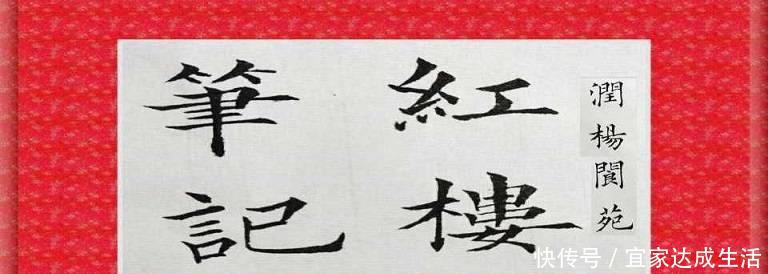 潤楊閬苑
紅樓
筆記
快传号 / 宜家达成生活